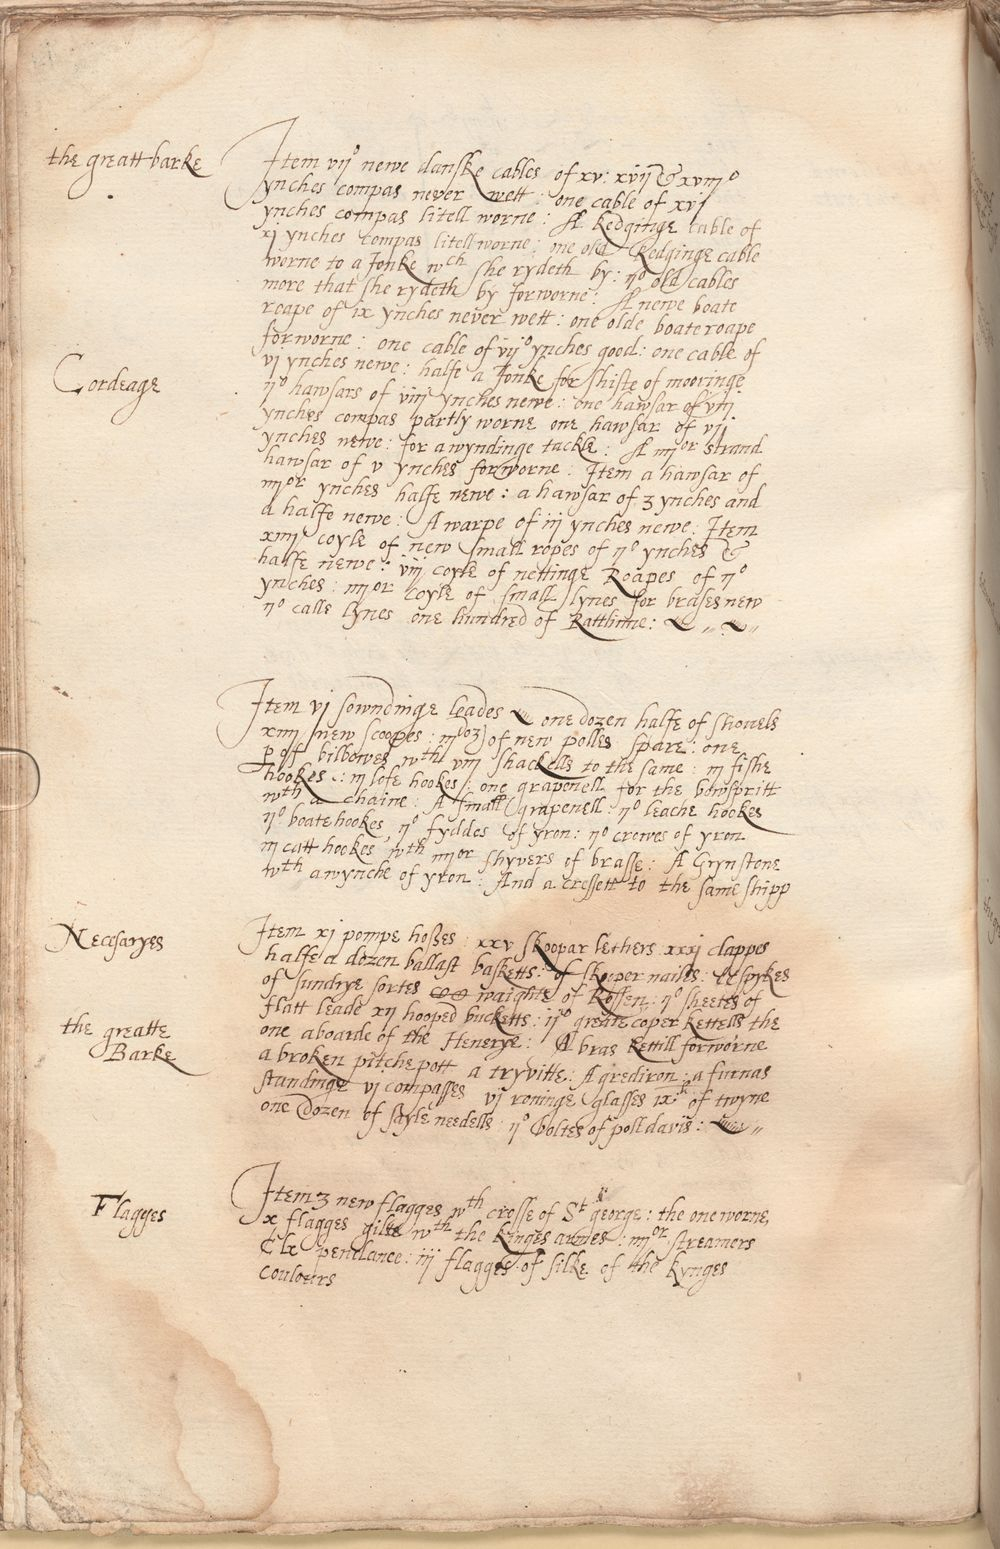 the greatt barke
Item vij° newe danske cables of xv: xvij & xviij°
ynches compas never wett: one cable of xvj
ynches compas litell worne: A kedginge cable of
xj ynches compas litell worne: one old Kedginge cable
worne to a Jonke wch she rydeth by: ij° old cables
more that she rydeth by forworne: A newe boate
roape of ix ynches never wett: one olde boate roape
forworne: one cable of vij° ynches good: one cable of
Cordeage
vi ynches newe: halfe a Jonke for shifte of mooringe
ij° hawsars of viij ynches newe: one hawsar of viij
ynches compas partly worne one hawsar of vij
ynches newe: for a wyndinge tackle: A iiijor strand
hawsar of v ynches forworne: Item a hawsar of
iiijor ynches halfe newe: a hawsar of 3 ynches and
a halfe newe: A warpe of iij ynches newe: Item
xiiij coyle of new small ropes of ij° ynches &
halfe newe: viij coyle of nettinge Roapes of ij°
ynches: iiijor coyle of small lynes for brases new
ij° calle lynes one hundred of Rattlinne:
Item vj sowndinge leades one dozen halfe of shovels
xiiij new scoopes: iij doz of new polles spare: one
p of bilbowes wth viij shackells to the same: iij fishe
hookes: iij lofe hookes: one grapenell for the bowspritt
wth a chaine: A small grapenell: ij° leache hookes
ij° boatehookes, ij° fyddes of yron: ij° crowes of yron
iij catt hookes wth iiijor shyvers of brasse: A Grynstone
wth a wynche of yron: And a cressett to the same shipp
Necesaryes
Item xj pompe hoses: xxv skoopar lethers xxxj clappes
halfe a dozen ballast basketts: of skoper nailes: spykes
of sundrye sortes waighte of Rossen: ij° sheetes of
flatt leade xij hooped bucketts: ij° greate coper kettells the
the greatte
Barke
one aboarde of the Henerye: A bras kettill forworne
a broken pitche pott a tryvitte: A grediron: a furnas
standinge vj compasses vj roninge glasses ix of twyne
one dozen of sayle needells: ij° boltes of polldavis:
Flagges
Item 3 new flagges wth crosse of St george: the one worne,
x flagges gilte wth the kinges armes: iiijor streamers
Clx penclance: iij flagges of silke of the kynges
couloeirs